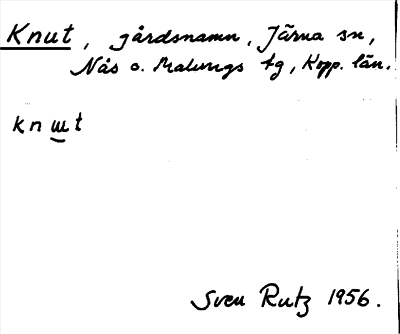 Knut, gårdsnamn, Järna sn,
Nås o. Malungs tg, Kopp. län.
knɯ̯t
Sven Rutz 1956.